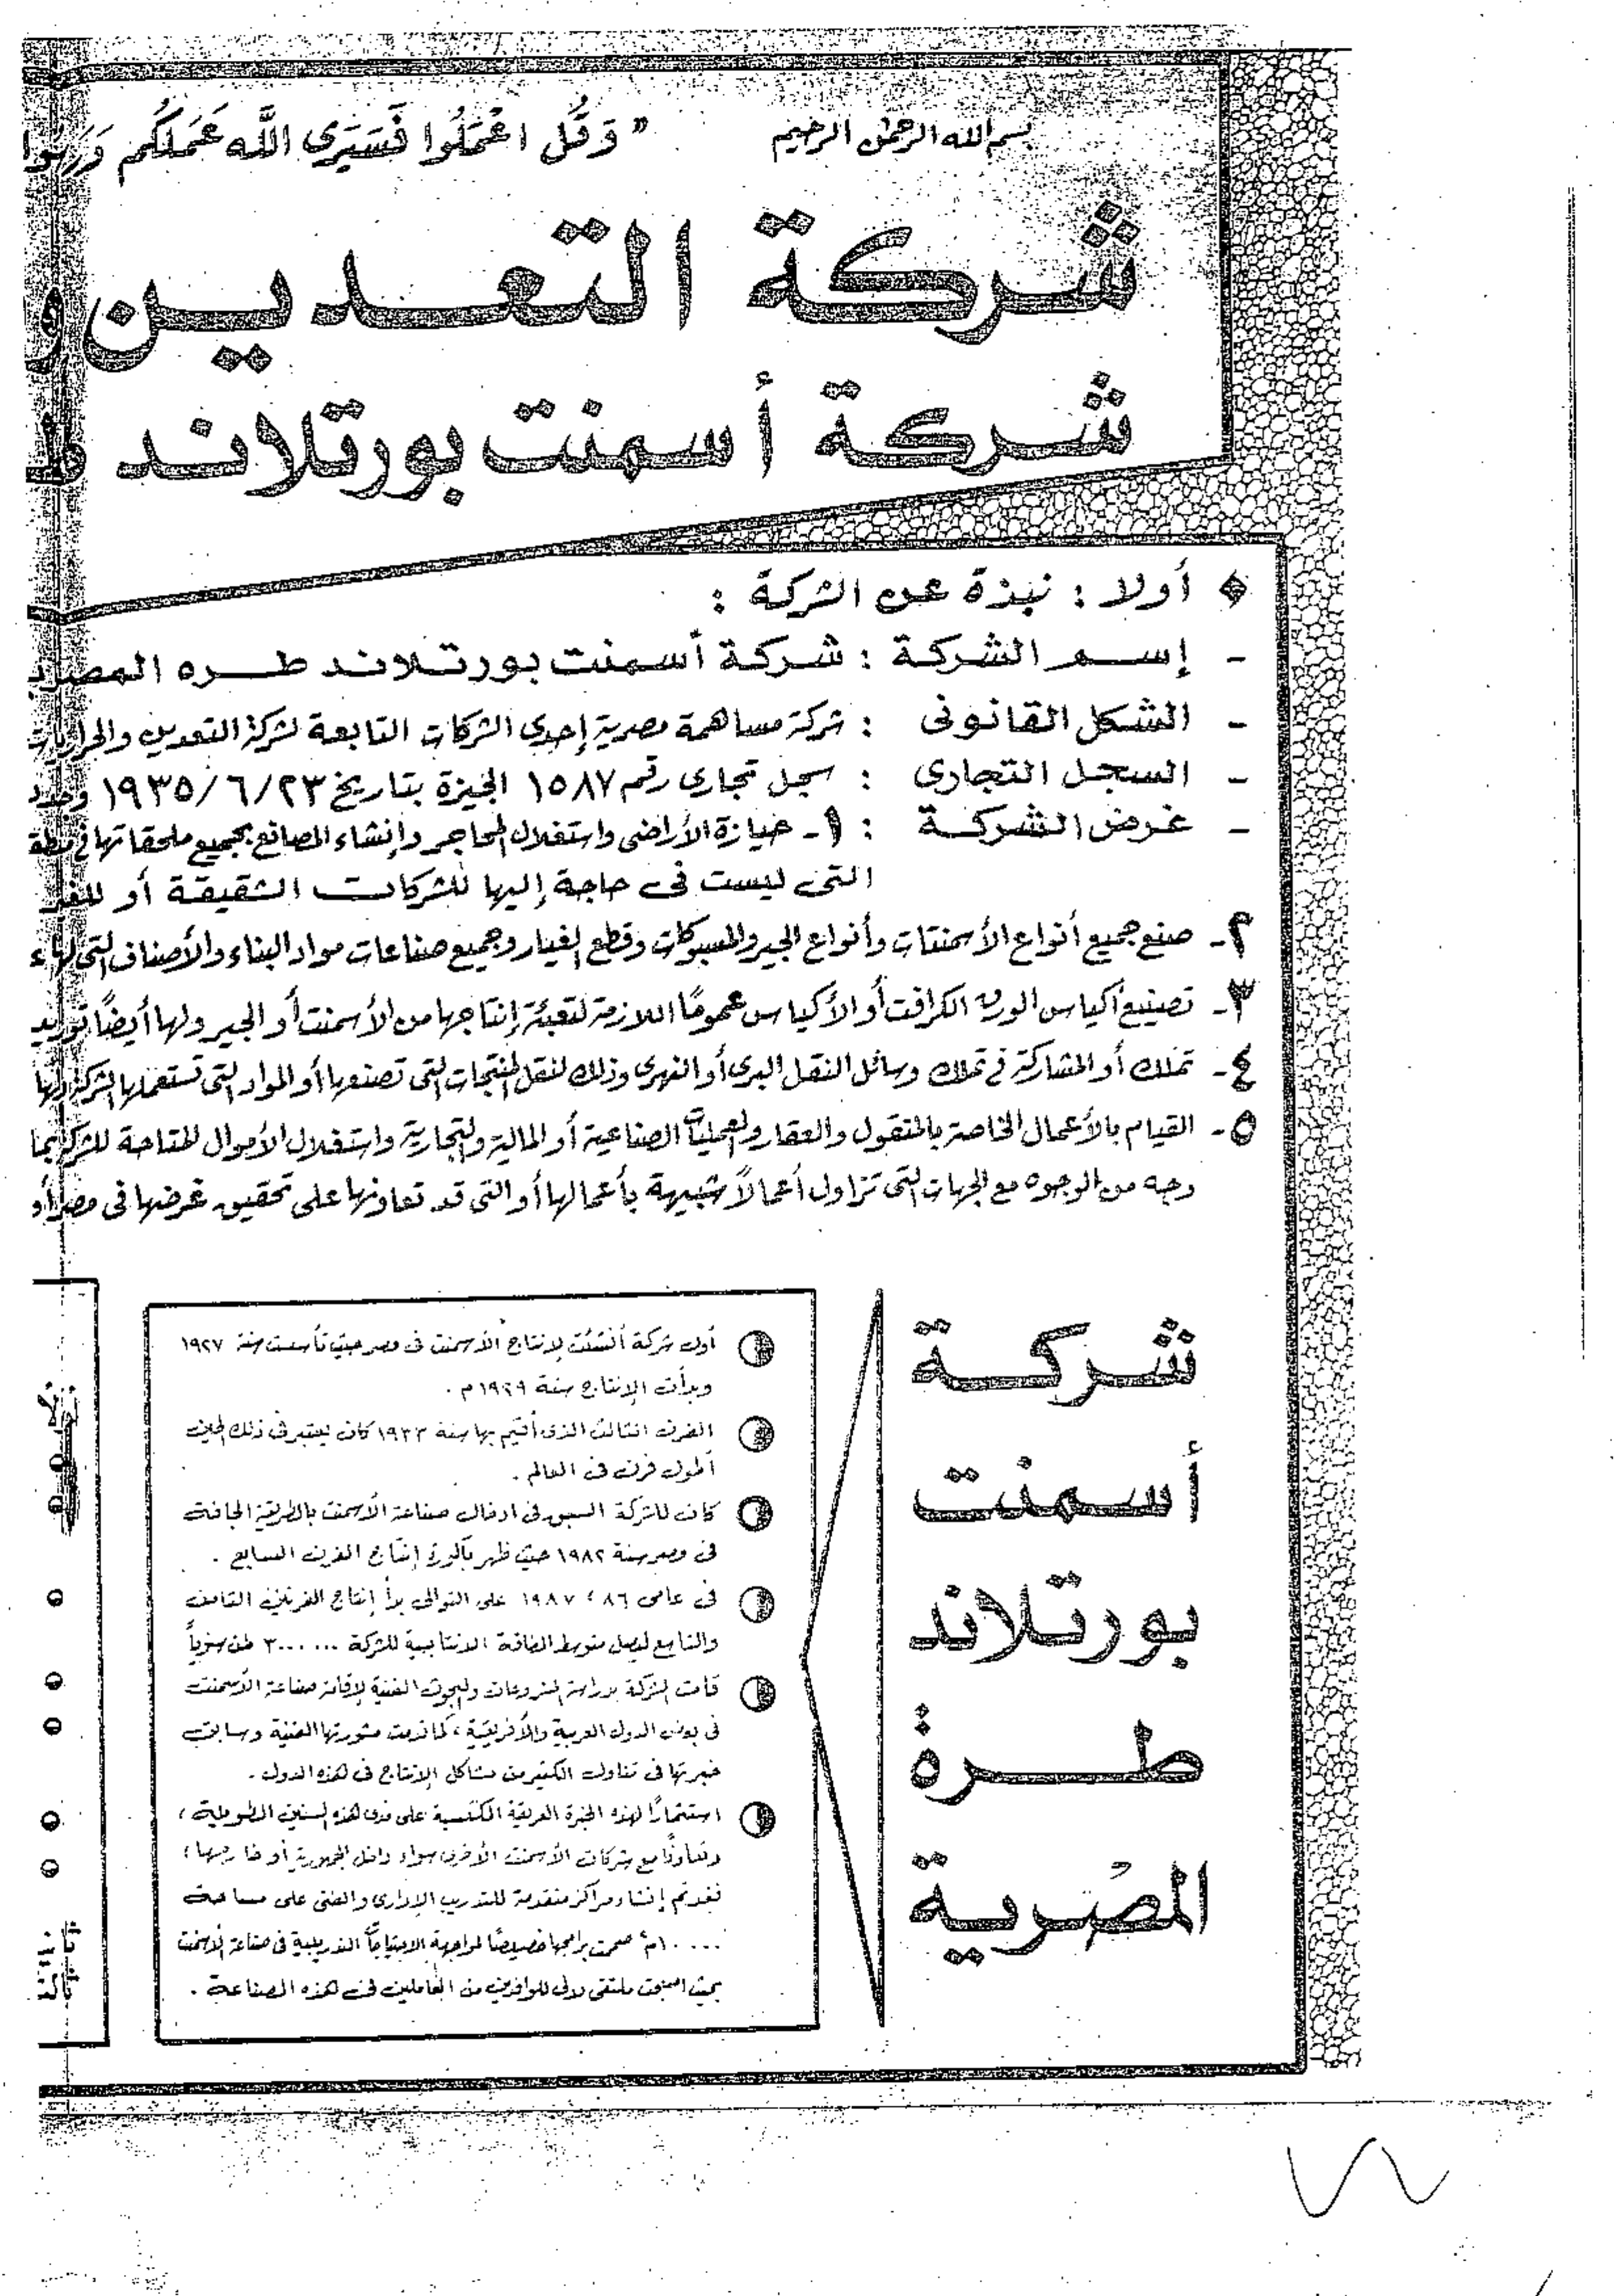 بسم الله الرحمن الرحيم
" وَقُل اعْمَلُوا فَسَيَرَى اللَّه عَمَلَكُم
شركة التعدين و
شركة أسمنت بورتلاند
أولا : نبذة عن الشركة :
- إسم الشركة : شركة أسمنت بورتلاند طره
- الشكل القانونى : شركة مساهمة مصرية إحدى الشركات التابعة لشركة التعدين والحراريات
- السجل التجارى : سجل تجارى رقم ١٥٨٧ الجيزة بتاريخ ٢٣/٦/١٩٣٥
- غرض الشركة : ١- حيازة الأراضى واستغلال المحاجر وإنشاء المصانع بجميع ملحقاتها فى
التى ليست فى حاجة إليها للشركات الشقيقة أو
٢- صنع جميع أنواع الأسمنتات وأنواع الجير والمسبوكات وقطع الغيار وجميع صناعات مواد البناء والأصناف التى لها
٣- تصنيع أكياس الورق الكرافت أو الأكياس عمومًا اللازمة لتعبئة إنتاجها من الأسمنت أو الجير ولها أيضًا توريد
٤- تملك أو المشاركة فى تملك وسائل النقل البرى أو النهرى وذلك لنقل المنتجات التى تصنعها أو المواد التى تستعملها الشركة
٥- القيام بالأعمال الخاصة بالمنقول والعقار والعمليات الصناعية أو المالية والتجارية واستغلال الأموال المتاحة للشركة بما
وجه من الوجوه مع الجهات التى تزاول أعمالاً شبيهة بأعمالها أو التى قد تعاونها على تحقيق غرضها فى مصر أو
شركة
أسمنت
بورتلاند
طرة
المصرية
أول شركة أنشئت لإنتاج الأسمنت فى مصر حيث تأسست سنة ١٩٢٧
وبدأت الإنتاج سنة ١٩٢٩م .
الفرن الثالث الذى أقيم بها سنة ١٩٣٣ كان يعتبر فى ذلك الحين
أطول فرن فى العالم .
كان للشركة السبق فى ادخال صناعة الأسمنت بالطريقة الجافة
فى مصر سنة ١٩٨٢ حيث ظهر باكورة إنتاج الفرن السابع .
فى عامى ٨٦ ، ١٩٨٧ على التوالى بدأ إنتاج الفرنين الثامن
والتاسع ليصل متوسط الطاقة الانتاجية للشركة ٣٠٠٠٠٠٠ طن سنوياً
قامت الشركة بدراسة المشروعات والبحوث الفنية لإقامة صناعة الأسمنت
فى بعض الدول العربية والأفريقية ، كما قدمت مشورتها الفنية وسابق
خبرتها فى تناول الكثير من مشاكل الإنتاج فى هذه الدول .
استثمارًا لهذه الخبرة العريقة المكتسبة على مدى هذه السنين الطويلة ،
وتعاونًا مع شركات الأسمنت الأخرى سواء داخل الجمهورية أو خارجها ،
فقد تم إنشاء مراكز متقدمة للتدريب الإدارى والفنى على مساحة
١٠٠٠٠م٢ صممت برامجها خصيصًا لمواجهة الاحتياجات التدريبية فى صناعة الأسمنت
بحيث اصبحت ملتقى دولى للوافدين من العاملين فى هذه الصناعة .